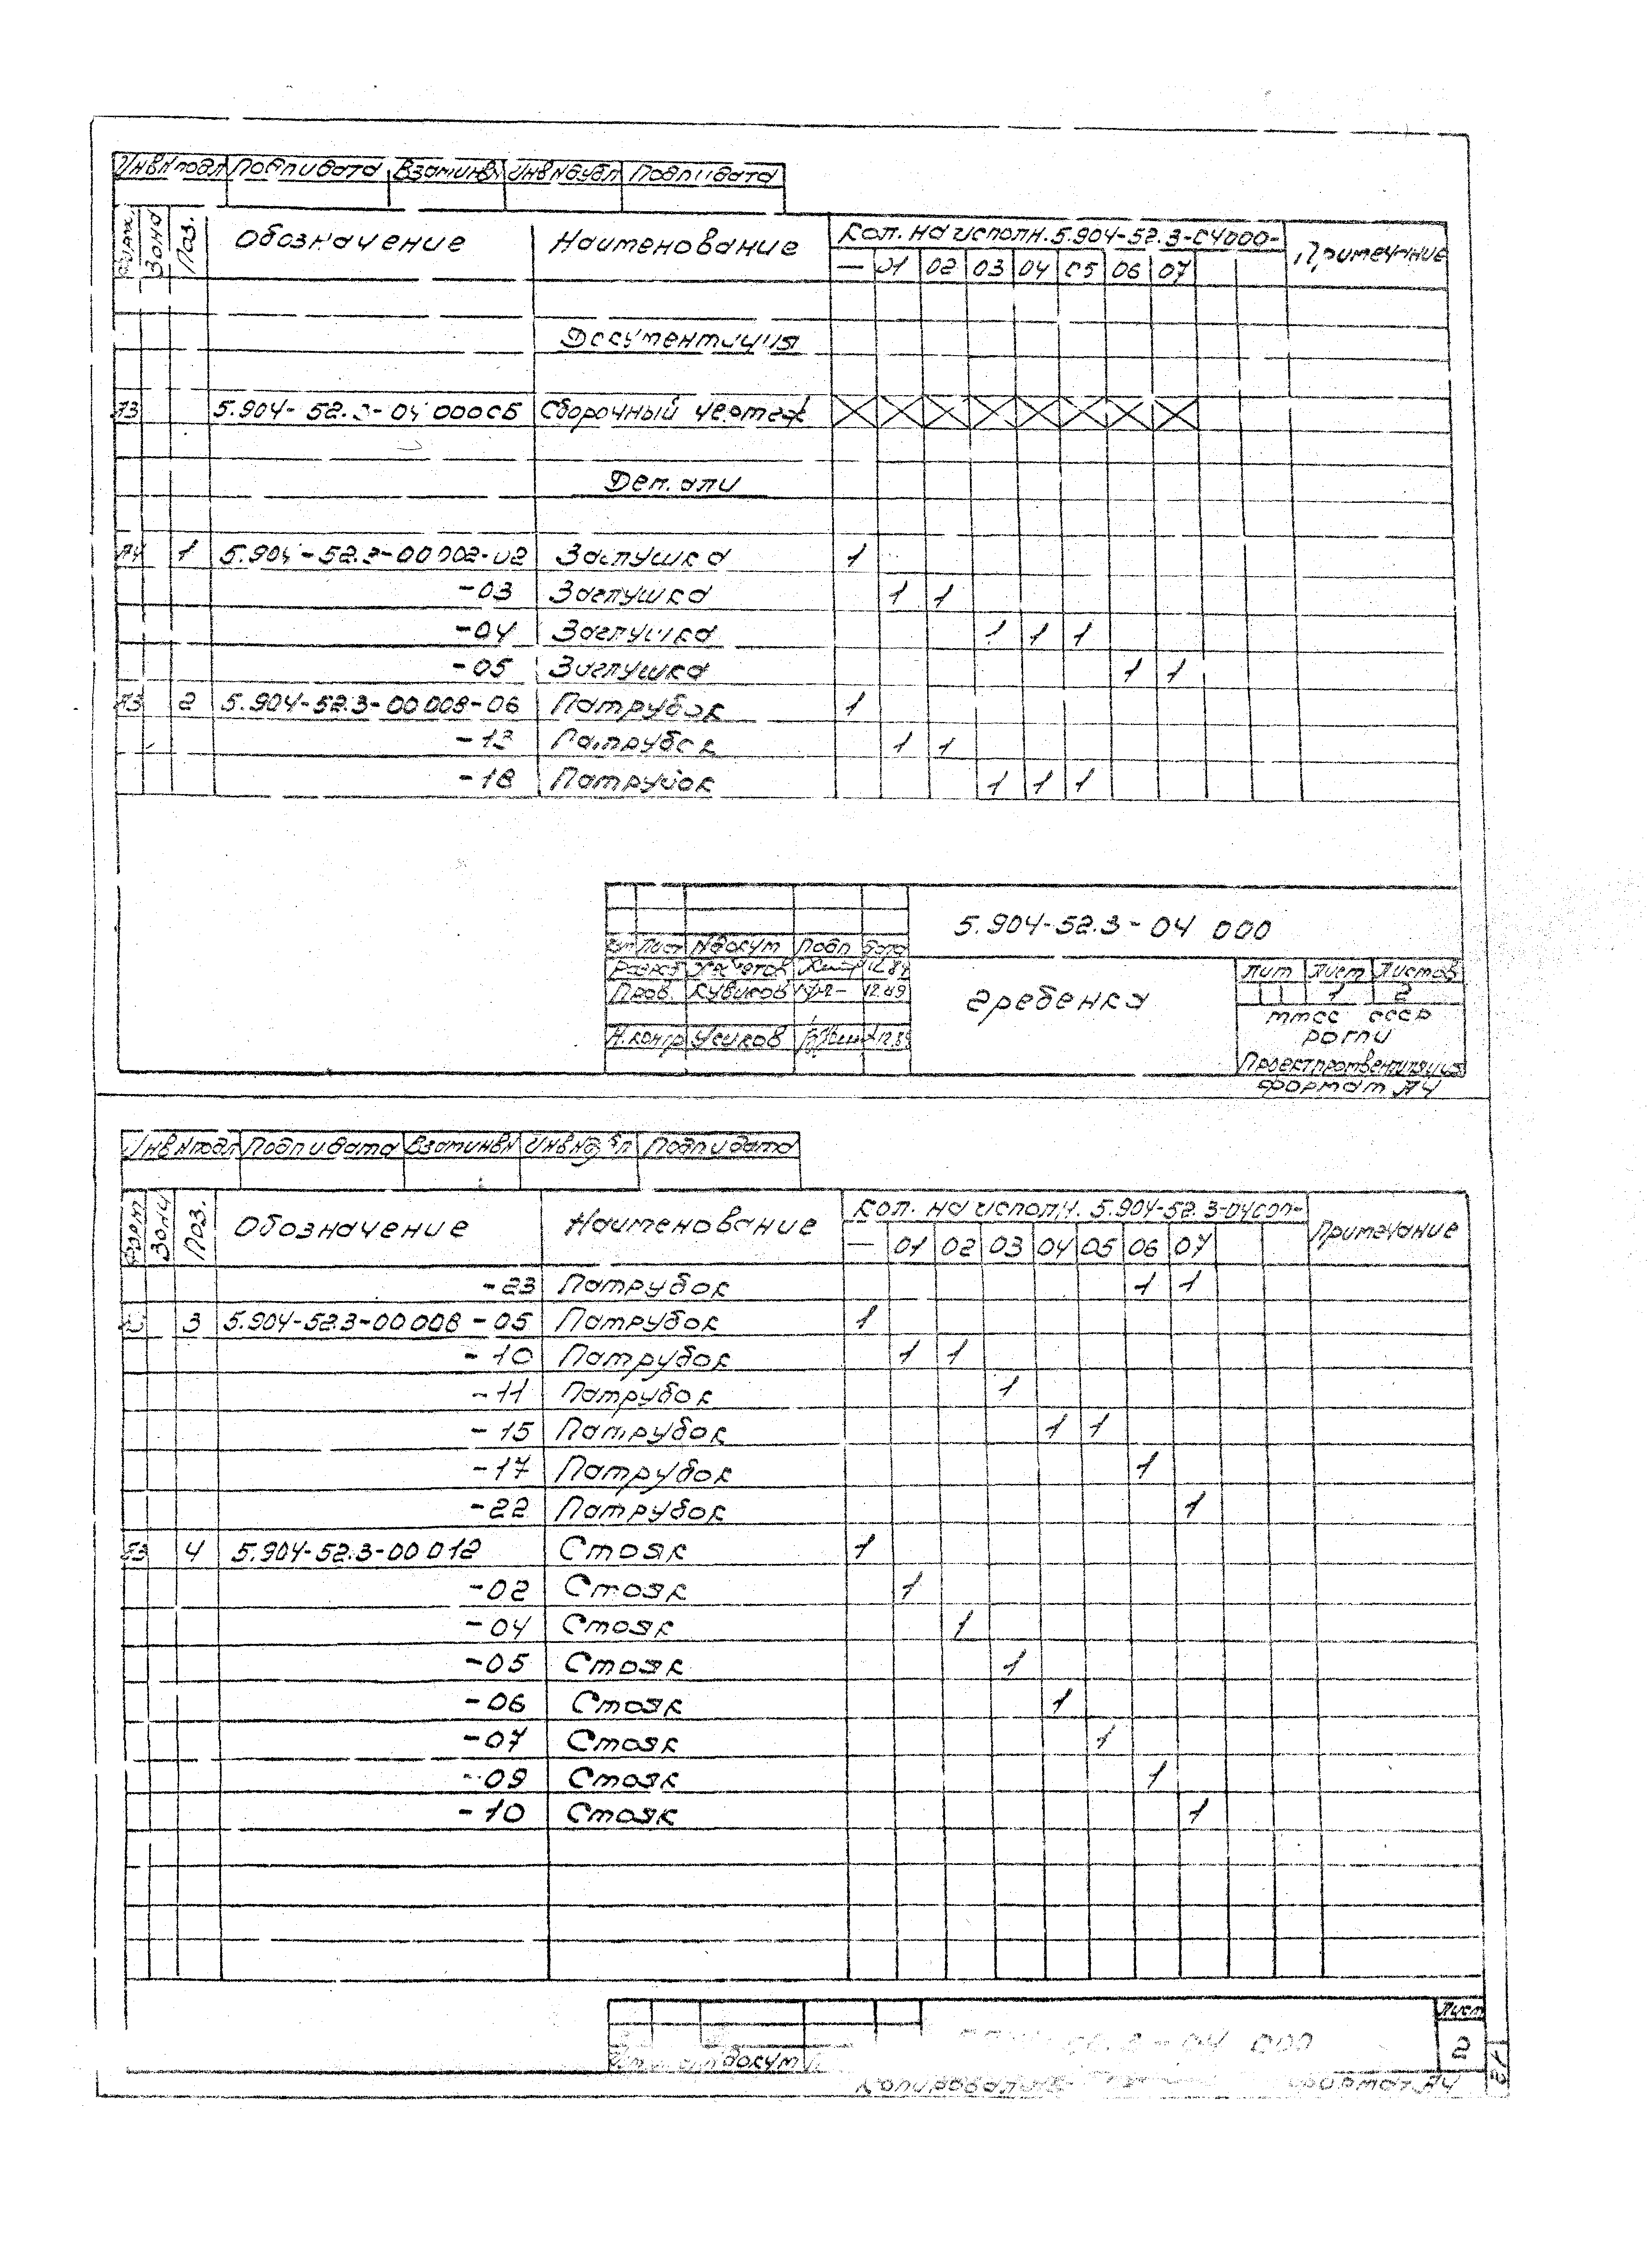 Инв N подл Подп и дата Взам инв N Инв N дубл Подп и дата
Форм. Зона Поз. Обозначение Наименование Кол. на исполн. 5.904-52.3-04000- Примечание
— 01 02 03 04 05 06 07
Документация
А3 5.904-52.3-04 000СБ Сборочный чертеж
Детали
А4 1 5.904-52.3-00 002-02 Заглушка 1
-03 Заглушка 1 1
-04 Заглушка 1 1 1
-05 Заглушка 1 1
А3 2 5.904-52.3-00 008-06 Патрубок 1
-13 Патрубок 1 1
-18 Патрубок 1 1 1
5.904-52.3-04 000
Лист N докум Подп Дата
Разраб 12.89
Пров. 12.89
Н.контр Усиков 12.89
Гребенка
Лит Лист Листов
1 2
ММСС СССР
РОГПИ
Проектпромвентиляция
Формат А4
Инв N подл Подп и дата Взам инв N Инв N дубл Подп и дата
Форм Зона Поз. Обозначение Наименование Кол. на исполн. 5.904-52.3-04000- Примечание
— 01 02 03 04 05 06 07
-23 Патрубок 1 1
А3 3 5.904-52.3-00 008-05 Патрубок 1
-10 Патрубок 1 1
-11 Патрубок 1
-15 Патрубок 1 1
-17 Патрубок 1
-22 Патрубок 1
А3 4 5.904-52.3-00 012 Стояк 1
-02 Стояк 1
-04 Стояк 1
-05 Стояк 1
-06 Стояк 1
-07 Стояк 1
-09 Стояк 1
-10 Стояк 1
04 000
Лист
2
докум
Копировал Формат А4